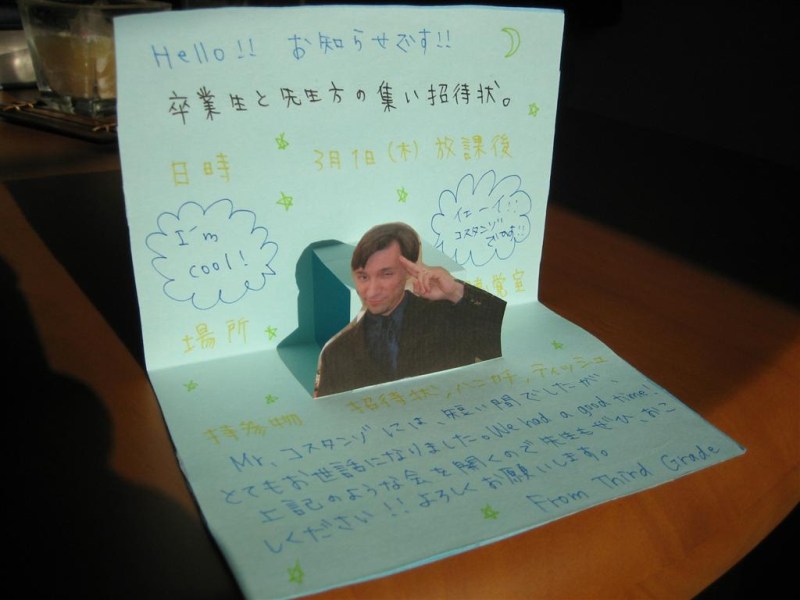 Hello!! お知らせです!!
卒業生と先生方の集い招待状。
日時 3月1日(木) 放課後
I'm
cool!
イエーイ!!
コスタンゾ
でーす!!
場所 覚室
持参物 招待状,ハンカチ,ティッシュ
Mr. コスタンゾには、短い間でしたが、
とてもお世話になりました。We had a good time!
上記のような会を開くので先生もぜひ、おこ
しください!! よろしくお願いします。
From Third Grade